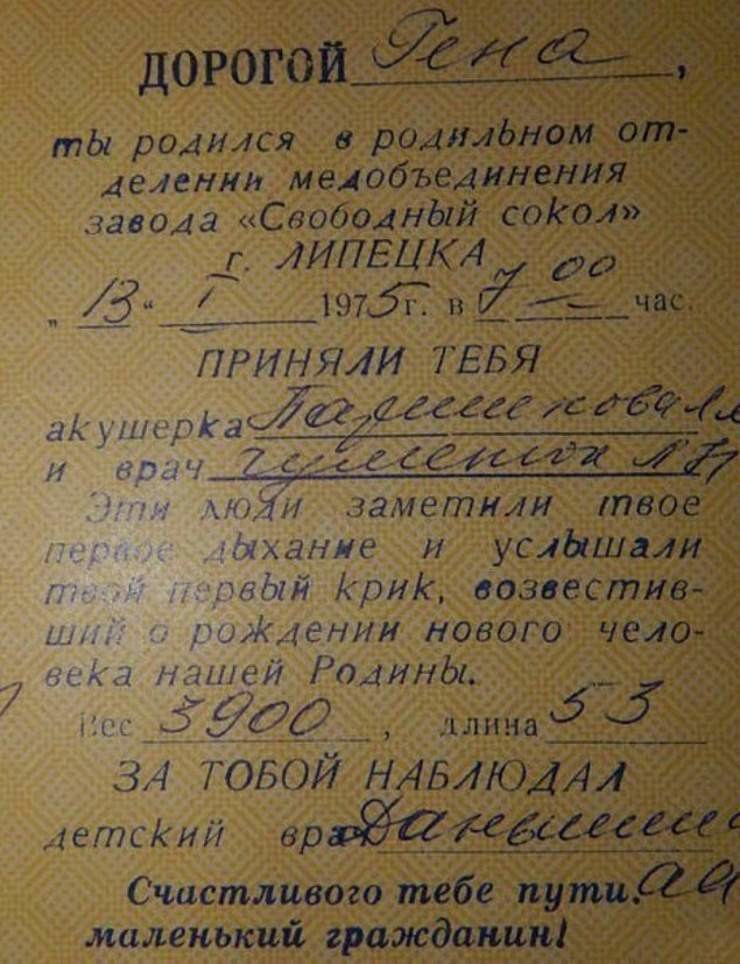 ДОРОГОЙ Гена,
ты родился в родильном от-
делении медобъединения
завода «Свободный сокол»
г. ЛИПЕЦКА
„13“ I 1975г. в 7 00 час.
ПРИНЯЛИ ТЕБЯ
акушерка
и врач
Эти люди заметили твое
первое дыхание и услышали
твой первый крик, возвестив-
ший о рождении нового чело-
века нашей Родины.
Вес 3900, длина 53
ЗА ТОБОЙ НАБЛЮДАЛ
детский врач
Счастливого тебе пути,
маленький гражданин!